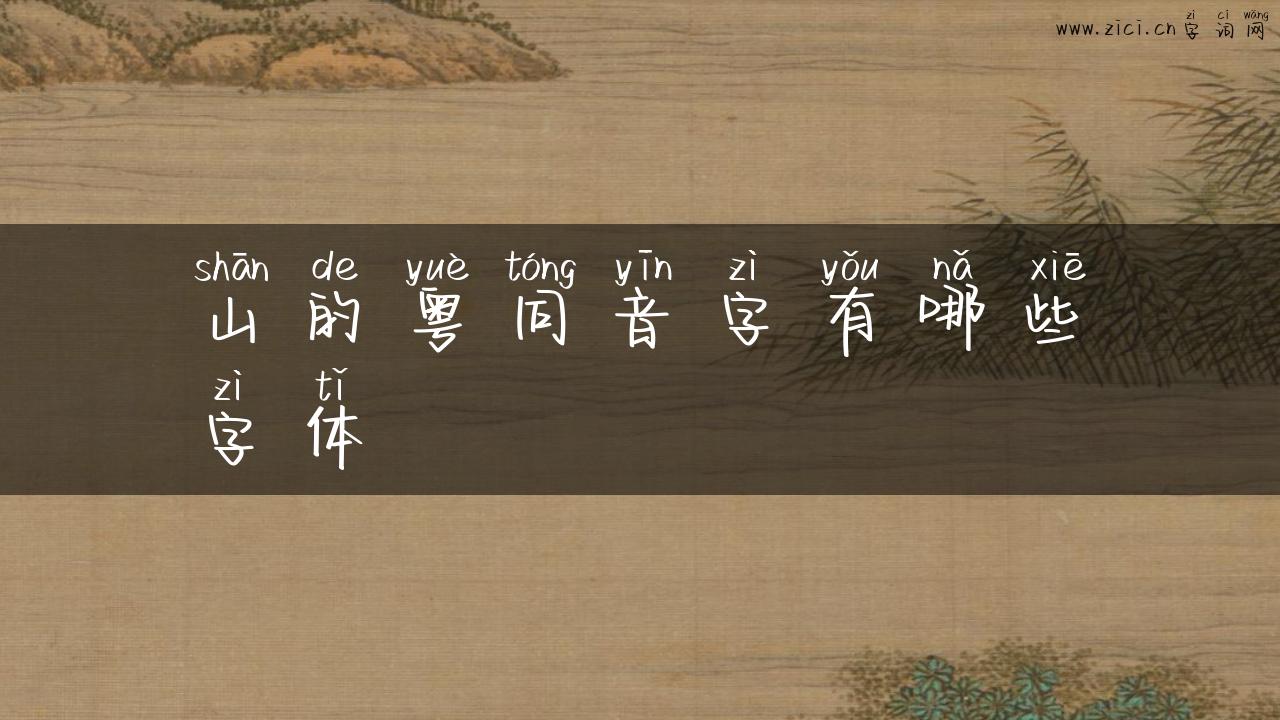 zì cí wǎng
www.zici.cn 字词网
shān de yuè tóng yīn zì yǒu nǎ xiē
山的粤同音字有哪些
zì tǐ
字体